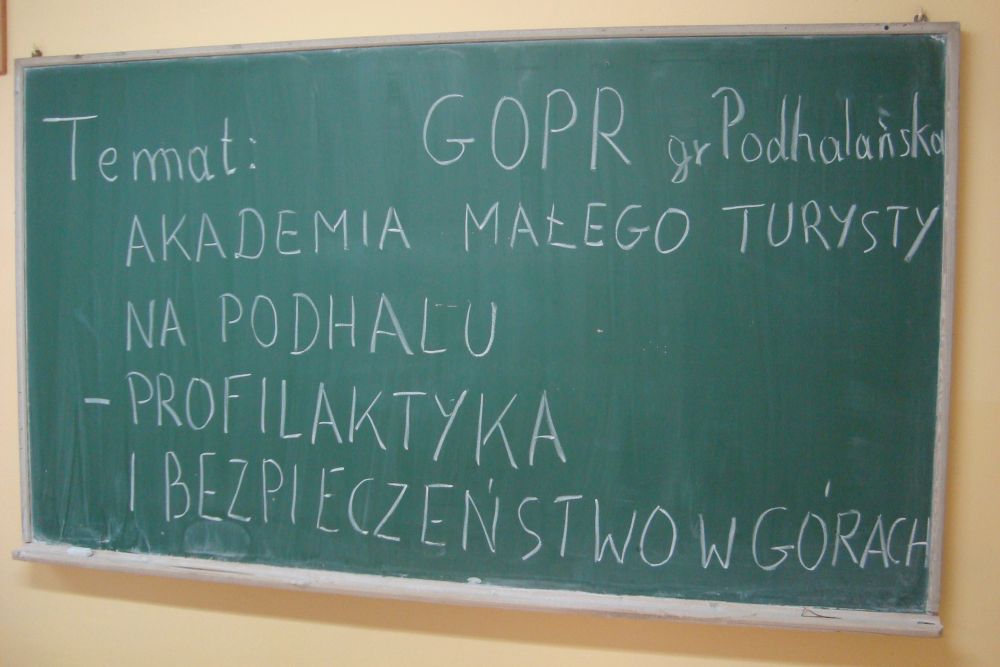 Temat: GOPR gr Podhalańska
AKADEMIA MAŁEGO TURYSTY
NA PODHALU
- PROFILAKTYKA
I BEZPIECZEŃSTWO W GÓRACH